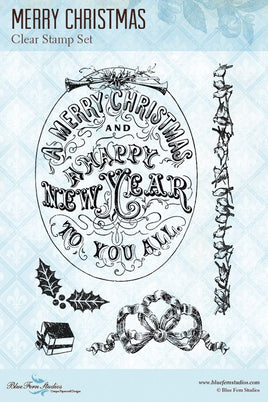 MERRY CHRISTMAS
Clear Stamp Set
A MERRY CHRISTMAS
AND
A HAPPY
NEW YEAR
TO YOU ALL.
Blue Fern Studios
www.bluefernstudios.com
© Blue Fern Studios